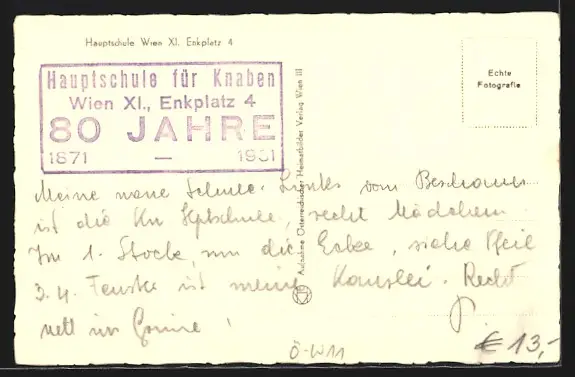 Hauptschule Wien XI. Enkplatz 4
Hauptschule für Knaben
Wien XI., Enkplatz 4
80 JAHRE
1871 — 1951
Echte
Fotografie
Aufnahme Österreichischer Heimatbilder Verlag Wien III
Meine neue Schule. Links vom Beschauer
ist die Kn Hptschule, rechts Mädchen
Im 1. Stock, um die Ecke, siehe Pfeil
3. 4. Fenster ist meine Kanzlei. Recht
nett im Grünen!
Ö-W11
€ 13,-